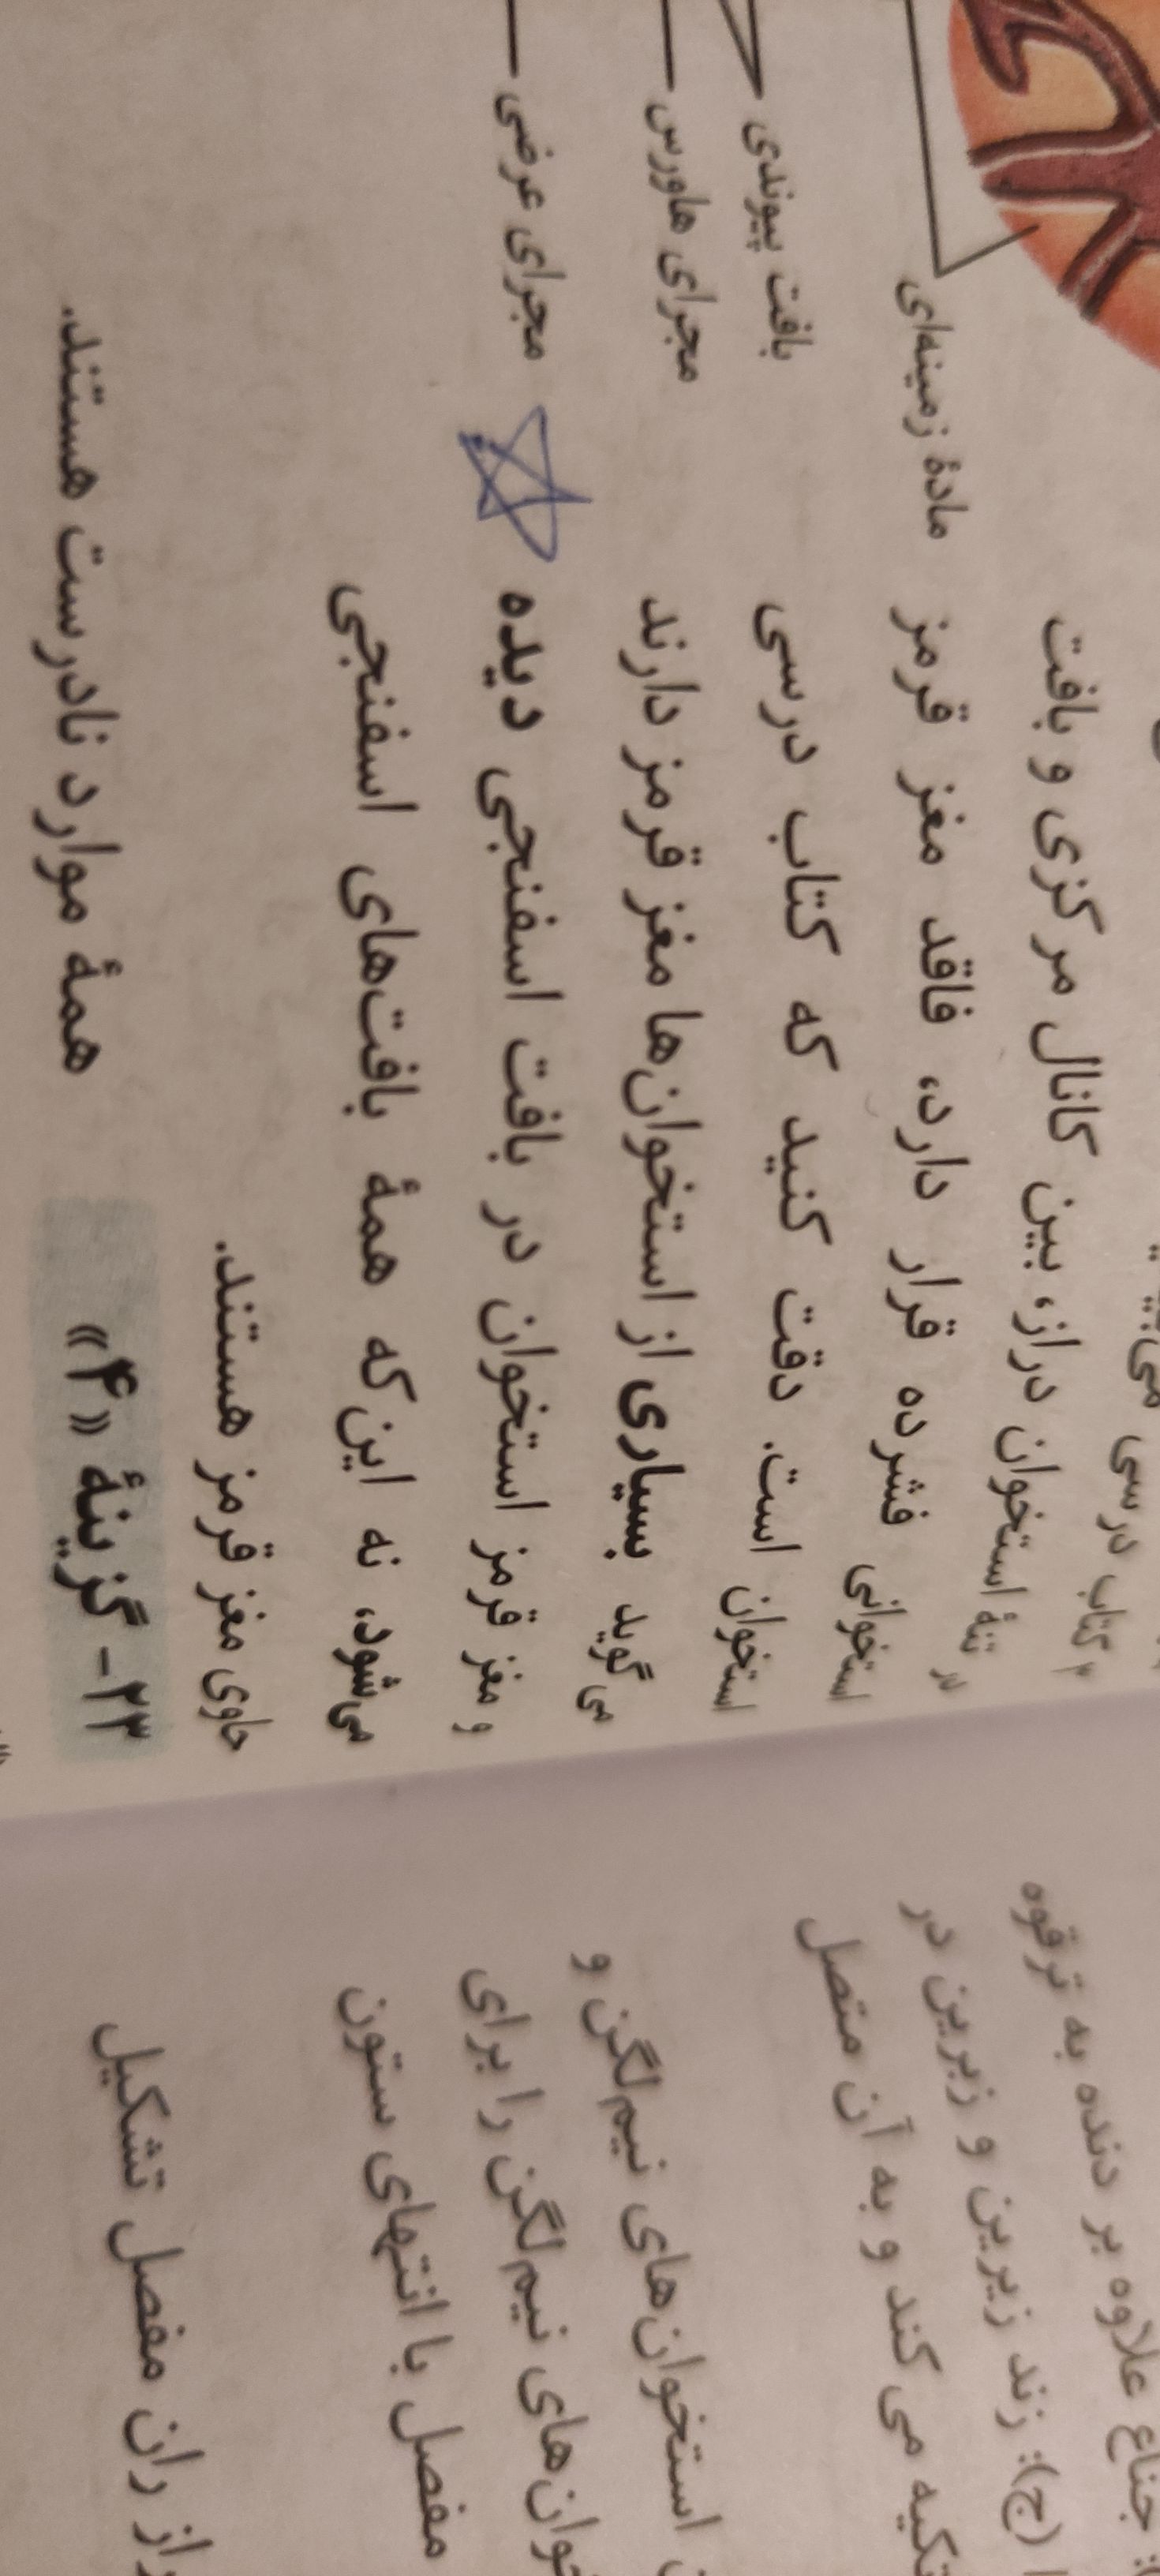 مادهٔ زمینه‌ای
بافت پیوندی
مجرای هاورس
مجرای عرضی
کتاب درسی
در تنهٔ استخوان دراز، بین کانال مرکزی و بافت
استخوانی فشرده قرار دارد، فاقد مغز قرمز
استخوان است. دقت کنید که کتاب درسی
می‌گوید بسیاری از استخوان‌ها مغز قرمز دارند
و مغز قرمز استخوان در بافت اسفنجی دیده
می‌شود، نه این‌که همهٔ بافت‌های اسفنجی
حاوی مغز قرمز هستند.
۲۳- گزینهٔ «۴»
همهٔ موارد نادرست هستند.
جناغ علاوه بر دنده به ترقوه
(ج): زند زیرین و زبرین در
تکیه می‌کند و به آن متصل
استخوان‌های نیم‌لگن و
نیم‌لگن را برای
مفصل با انتهای ستون
از ران مفصل تشکیل